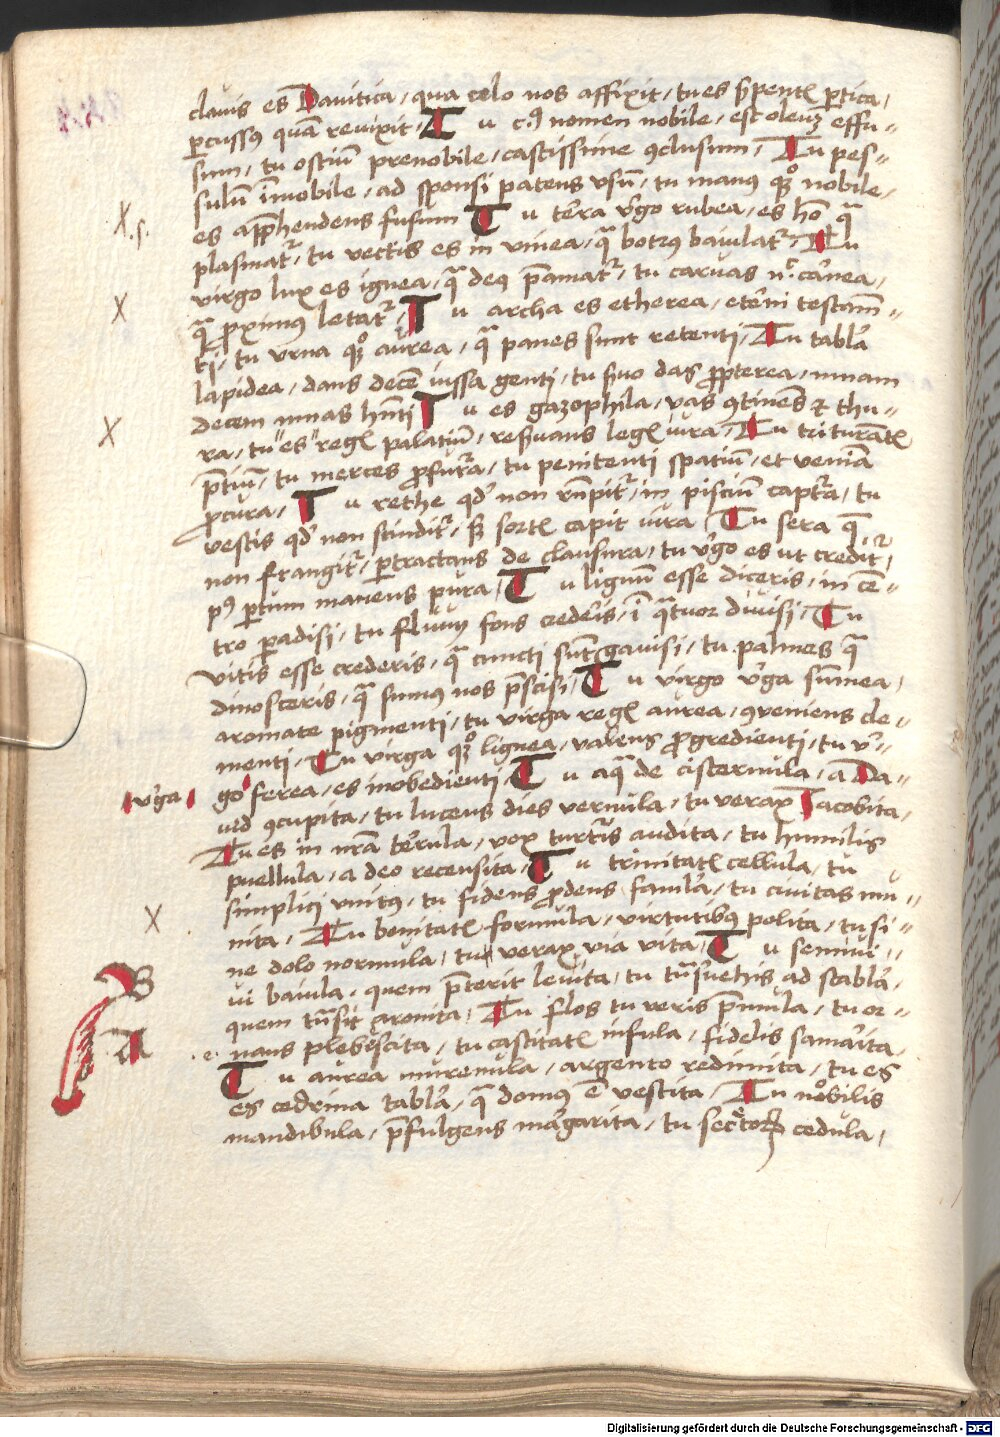 clauis es Dauitica, qua celo nos affixit, tu es s̃pentꝭ ꝑtica,
ꝑcussꝰ quã reuixit, Tu cꝰ nomen nobile, est oleuʒ effu-
sum, tu ostiũ prenobile, castissime ꝯclusum, Tu pes-
sulũ ĩmobile, ad sponsi patens vsũ, tu manꝰ qʒ nobile,
es app̃hendens fusum Tu t'ra v'go rubea, es hõ q̃
plasmatr̃, tu vectis es in vinea, q̃ botrꝰ baiulatr̃, Tu
virgo lux es ignea, q̃ deꝰ p̃amatr̃, tu caruas nᶜ carnea,
q̃ ꝓximꝰ letatr̃, Tu archa es etherea, et'ni testam̃-
ti, tu vrna qʒ aurea, q̃ panes sunt retenti, Tu tabl'a
lapidea, dans decẽ iussa genti, tu s̃uo das ꝓpterea, mnam
decem mnas hñti Tu es gazophila, vas ꝯtinẽs & thu-
ra, tu es regꝭ palatiũ, res̃uans legꝭ iura, Tu triturãtꝭ
p̃tiũ, tu merces ꝓfutura, tu penitenti spatiũ, et veniã
ꝓcura, Tu rethe qd' non rũpitr̃, in pisciũ captura, tu
vestis qd' non scinditr̃, s̃ sortꝭ capit iura, Tu sera q̃
non frangitr̃, ꝑtractans de clausura, tu v'go es ut creditr̃,
pꝰ ꝑtum manens pura, Tu lignũ esse diceris, in cẽ-
tro paradisi, tu fluuij fons crederis, ĩ q̃tuor diuisi, Tu
vitis esse crederis, q̃ cuncti sũt gauisi, tu palmes q̃
dinosceris, q̃ sumus nos p̃scisi, Tu virgo v'ga fumea,
aromate pigmenti, tu virga regꝭ aurea, ꝯueniens cle-
menti, Tu virga qʒ lignea, valens ꝓgredienti, tu v'-
v'ga go ferea, es inobedienti, Tu aq̃ de cisternula, a Da-
uid ꝯcupita, tu lucens dies vernula, tu verax Iacobita,
Tu es in nr̃a t'rula, vox turturis audita, tu humilis
puellula, a deo recensita, Tu trinitatꝭ cellula, tu
simplici vnitꝰ, tu fidens ꝓdens famul'a, tu ciuitas mu-
nita, Tu bonitatꝭ formula, virtutibꝰ polita, tu si-
ne dolo normula, tu verax via vita, Tu semiui-
ui baiula, quem p̃terit leuita, tu tũ s̃uehis ad stabl'a,
quem tñsit aronita, Tu flos tu veris p̃mula, tu or-
nans plebiscita, tu castitatꝭ infula, fidelis samarita,
Tu aurea murenula, argento redimita, tu es
es cedrina tabl'a, q̃ domus ẽ vestita, Tu nobilis
mandibula, p̃fulgens margarita, tu secretoꝝ cedula,
X.s.
X
X
X
B
A
Digitalisierung gefördert durch die Deutsche Forschungsgemeinschaft - DFG